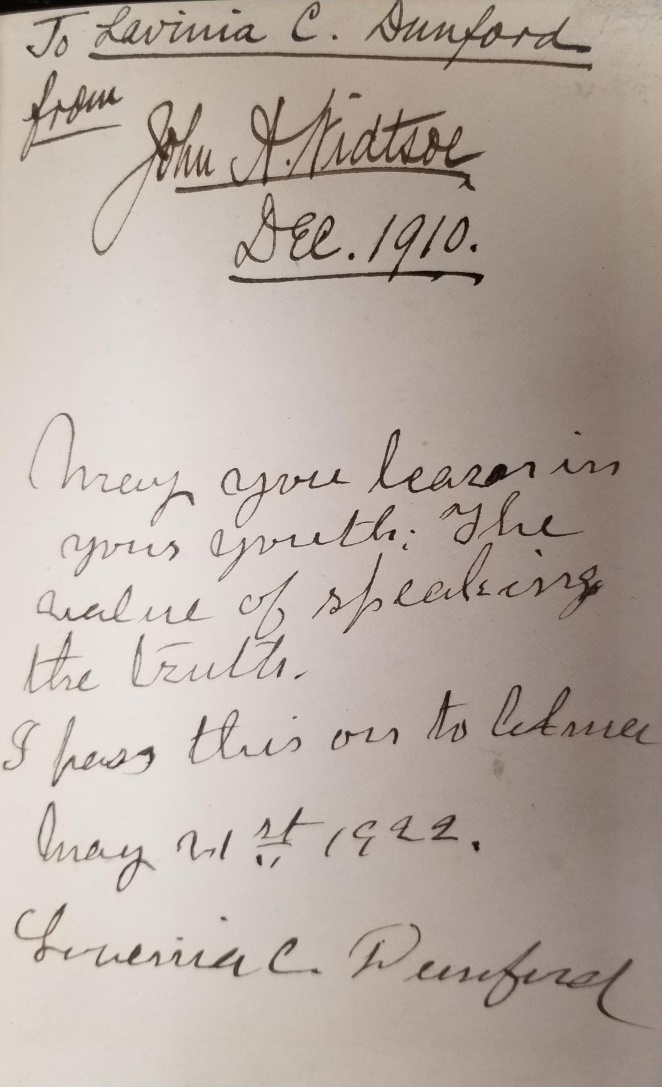 To Lavinia C. Dunford
from
John A. Widtsoe
Dec. 1910.
May you learn in
your youth; The
value of speaking
the truth.
I pass this on to
May 21st 1922.
Lovenia C. Dunford